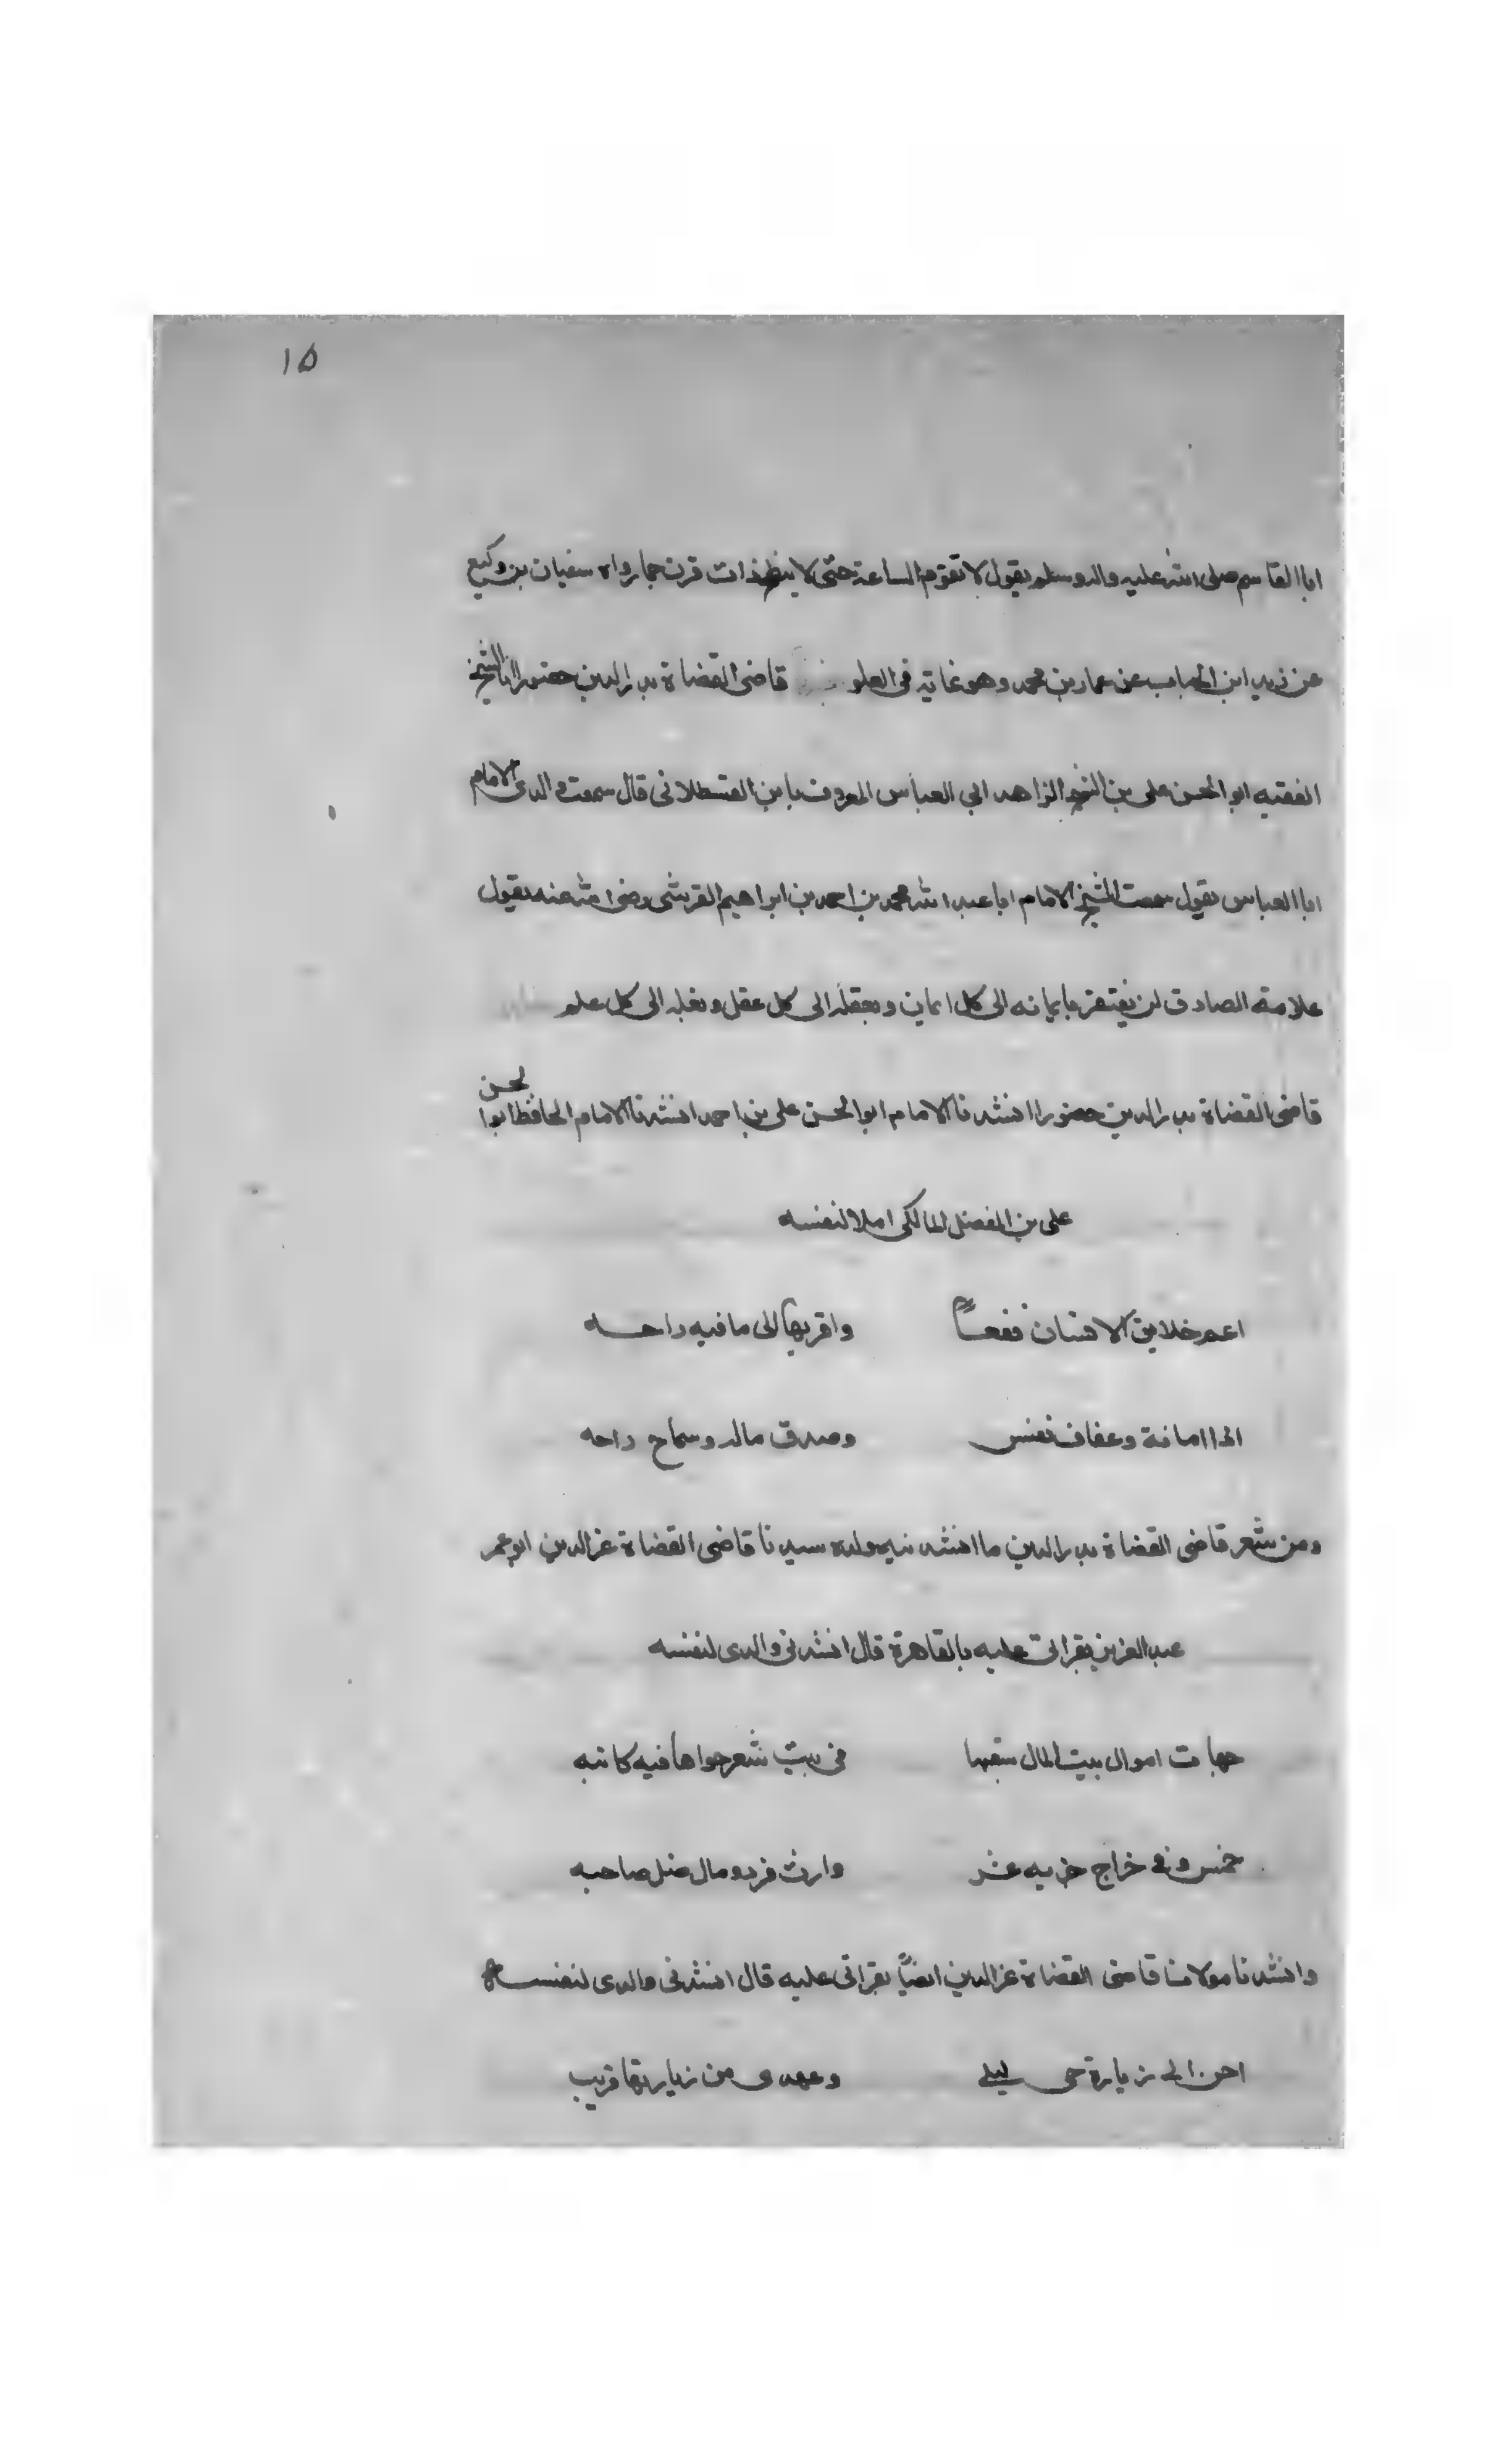 ١٥
ابا القاسم صلى الله عليه واله وسلم يقول لا تقوم الساعة حتى لا ينطح ذات قرن جما رواه سفيان بن وكيع
عن زيد ابن الحباب عن عمار بن محمد وهو غاية فى العلو قاضى القضاة بدر الدين حضورا انا الشيخ
الفقيه ابو الحسن على بن الشيخ الزاهد ابي العباس المعروف بابن القسطلانى قال سمعت والدى الامام
ابا العباس يقول سمعت الشيخ الامام ابا عبد الله محمد بن احمد بن ابراهيم القرشى رضى الله عنه يقول
علامة الصادق ان يفتقر بايمانه الى كل ايمان وبعقله الى كل عقل وبعلمه الى كل علم
قاضى القضاة بدر الدين حضورا انشدنا الامام ابو الحسن على بن احمد انشدنا الامام الحافظ ابو الحسن
على بن المفضل المالكى املا لنفسه
اعم خلايق الانسان نفعــا واقربها الى ما فيه راحــه
ادا امانة وعفاف نفس وصدق مقاله وسماح راحه
ومن شعر قاضى القضاة بدر الدين ما انشدنيه ولده سيدنا قاضى القضاة عز الدين ابو عمر
عبد العزيز بقراتى عليه بالقاهرة قال انشدنى والدى لنفسه
جهات اموال بيت المال سبعتها فى بيت شعر حواها فيه كاتبه
خمس وفى خراج جزيه عشر وارث فرد ومال ضل صاحبه
وانشدنا مولانا قاضى القضاة عز الدين ايضاً بقراتى عليه قال انشدنى والدى لنفســه
احن الى زيارة حى ليلى وعهدى من زيارتها قريب